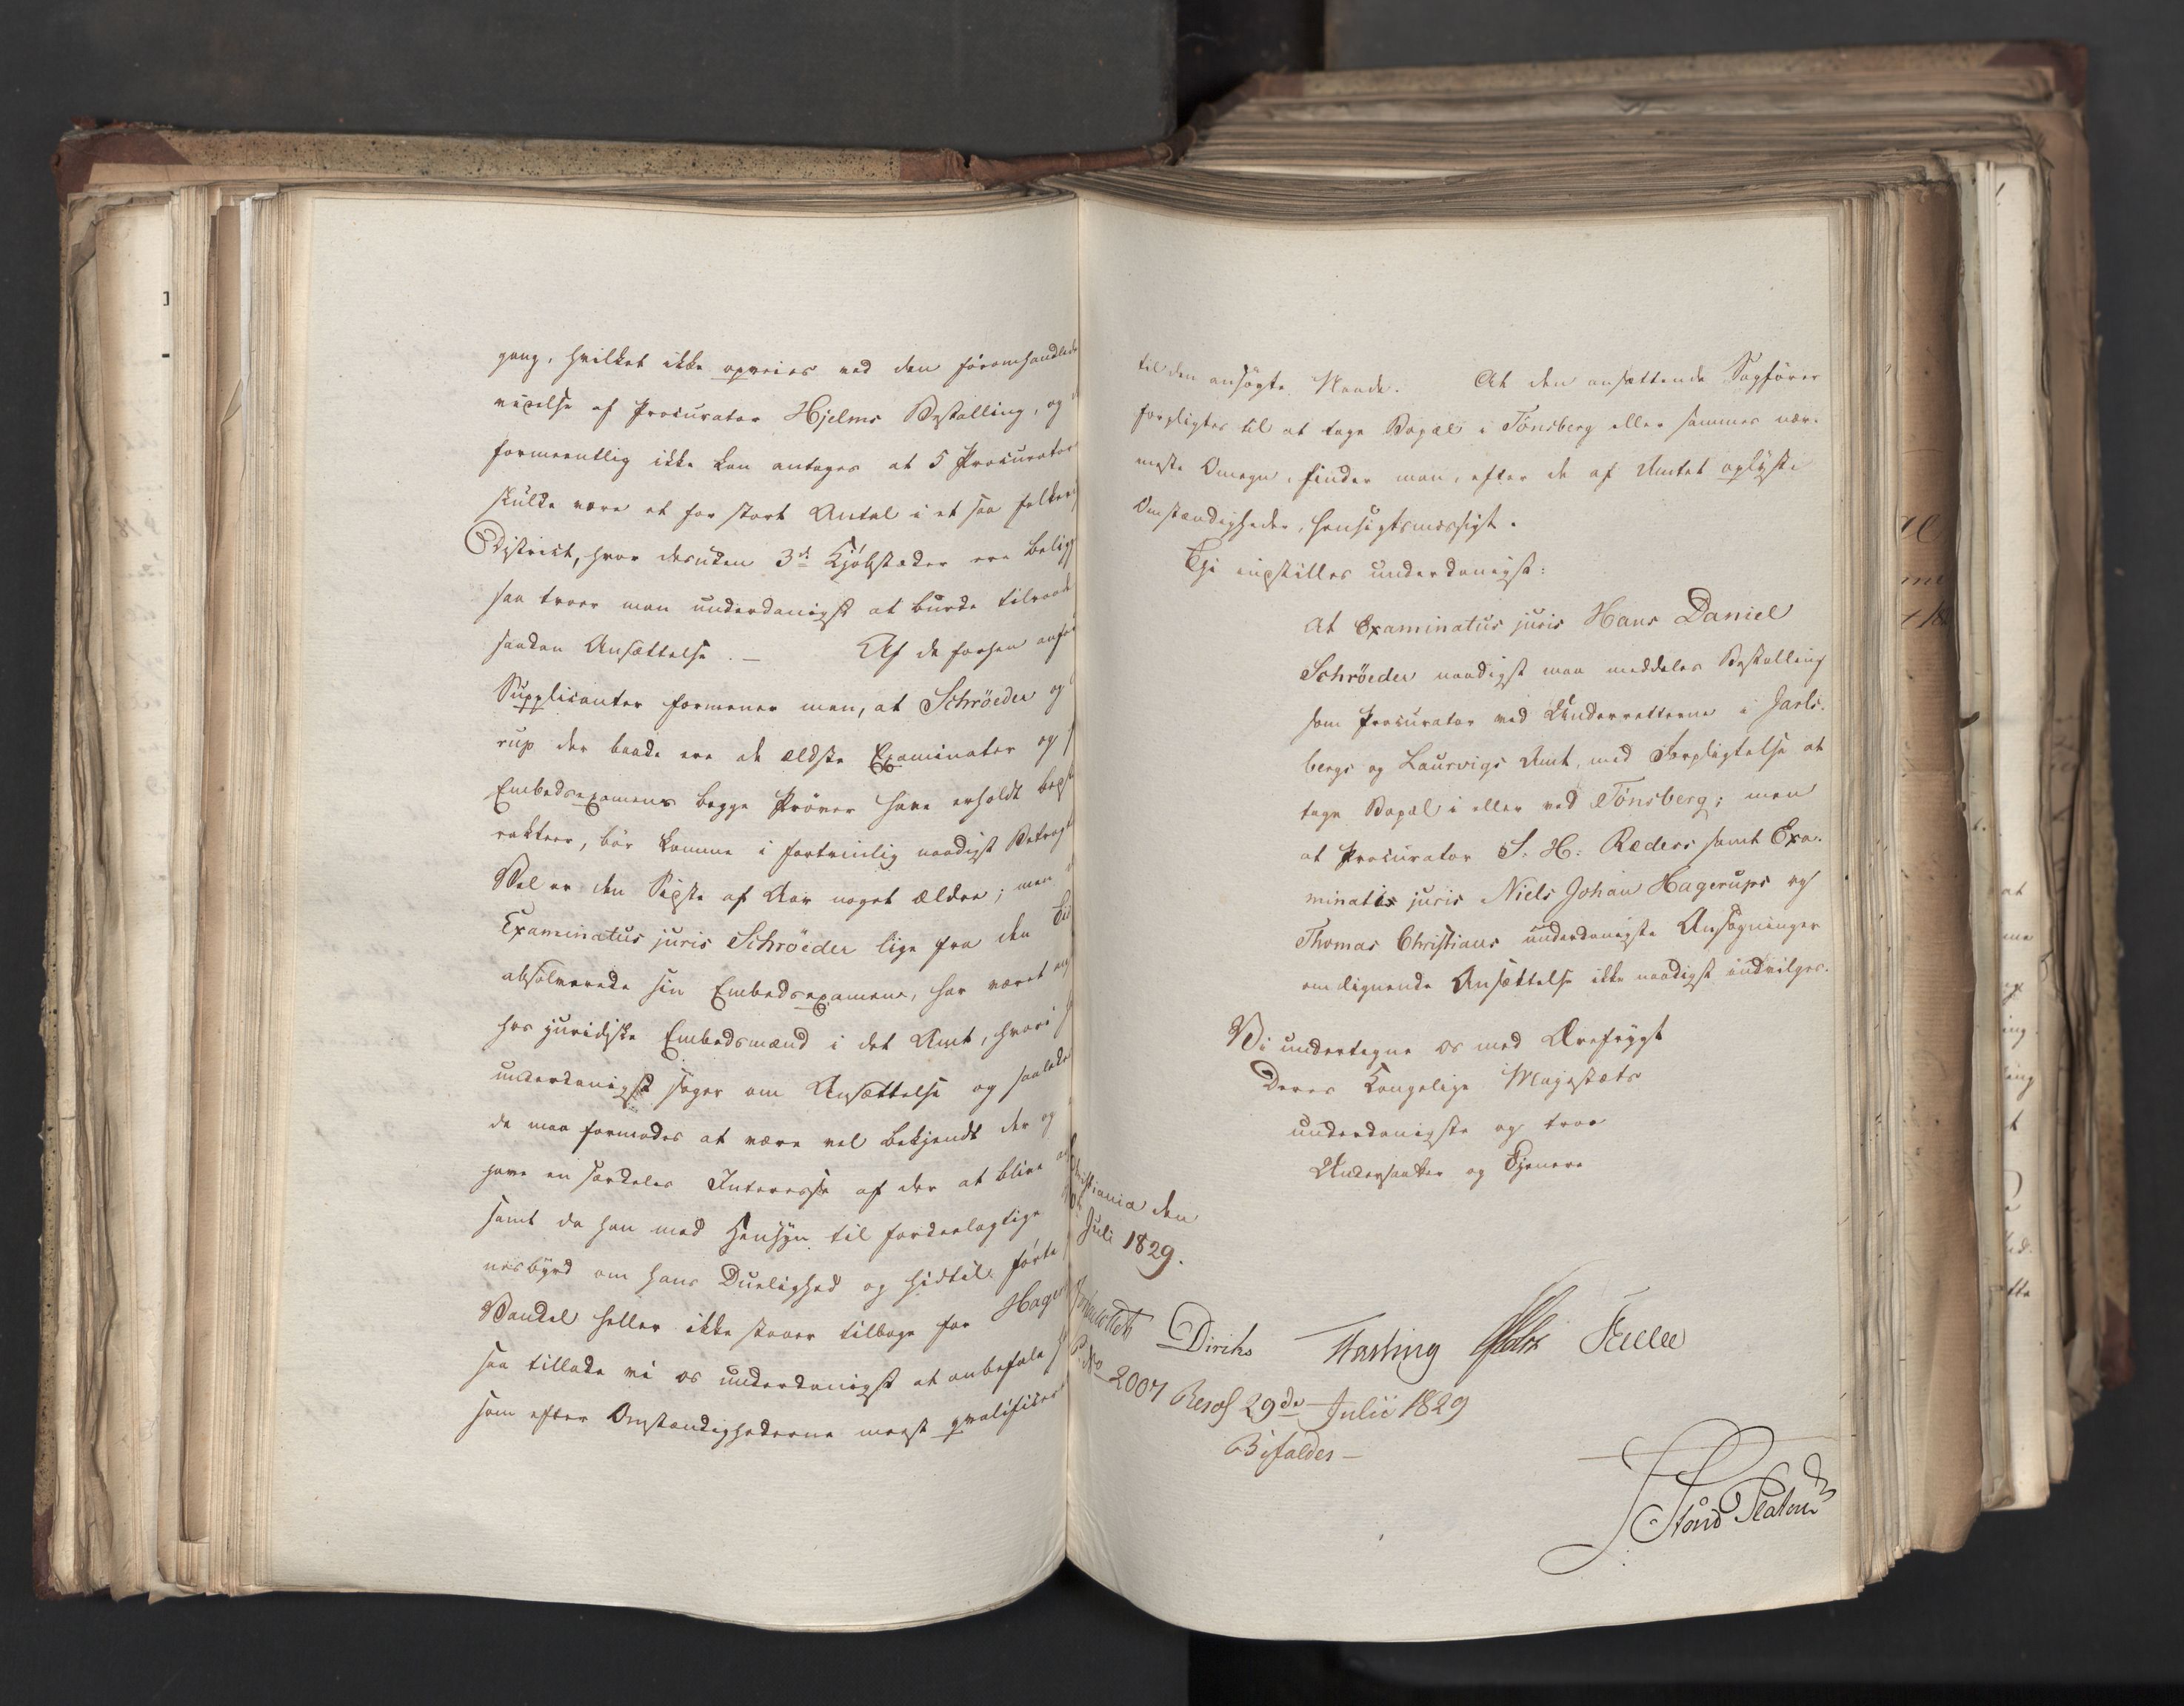 gang, hvilket ikke opveies ved den foromhandlede
vexelse af Procurator Hjelms Bestalling, og
formeentlig ikke kan antages at 5 Procurator
skulde være et for stort Antal i et saa folkeri
District, hvor desuden 3de Kjøbstæder ere belig
saa troer man underdanigst at burde tilraade
saadan Ansættelse. — Af de forhen anfø
Supplicanter formener man, at Schröeder og
rup der baade ere de ældste Examinater og
Embedsexamens begge Prøver have erholdt bedst
rakteer, bør komme i fortrinlig naadigst Betragt
Vel er den Sidste af Aar noget ældre; men
Examinatus juris Schröeder lige fra den Tid
absolverede sin Embedsexamen, har været
hos juridiske Embedsmænd i det Amt, hvori
underdanigst søger om Ansættelse og saaledes
de maa formodes at være vel bekjendt der og
have en særdeles Interesse af der at blive
samt da han med Hensyn til fordeelagtige
nesbyrd om hans Duelighed og hidtil førte
Vandel heller ikke staaer tilbage for Hager
saa tillade vi os underdanigst at anbefale
som efter Omstændighederne meest qvalificeret
til den ansøgte Naade. At den ansættende Sagfører
forpligtes til at tage Bopæl i Tönsberg eller sammes nær-
meste Omegn, finder man, efter de af Amtet oplyste
Omstændigheder, hensigtsmæssigt.
Thi indstilles underdanigst:
At Examinatus juris Hans Daniel
Schröeder naadigst maa meddeles Bestalling
som Procurator ved Underretterne i Jarls-
bergs og Laurvigs Amt, med Forpligtelse at
tage Bopæl i eller ved Tönsberg; men
at Procurator S. H. Ræders samt Exa-
minatis juris Niels Johan Hagerups og
Thomas Christians underdanigste Ansøgninger
om lignende Ansættelse ikke naadigst indvilges.
Vi undertegne os med Ærefrygt
Deres Kongelige Majestæts
underdanigste og troe
Undersaatter og Tjenere
Christiania den
Juli 1829.
Diriks Fasting Holst
No 2007 Resol 29de Julii 1829
Bifaldes —